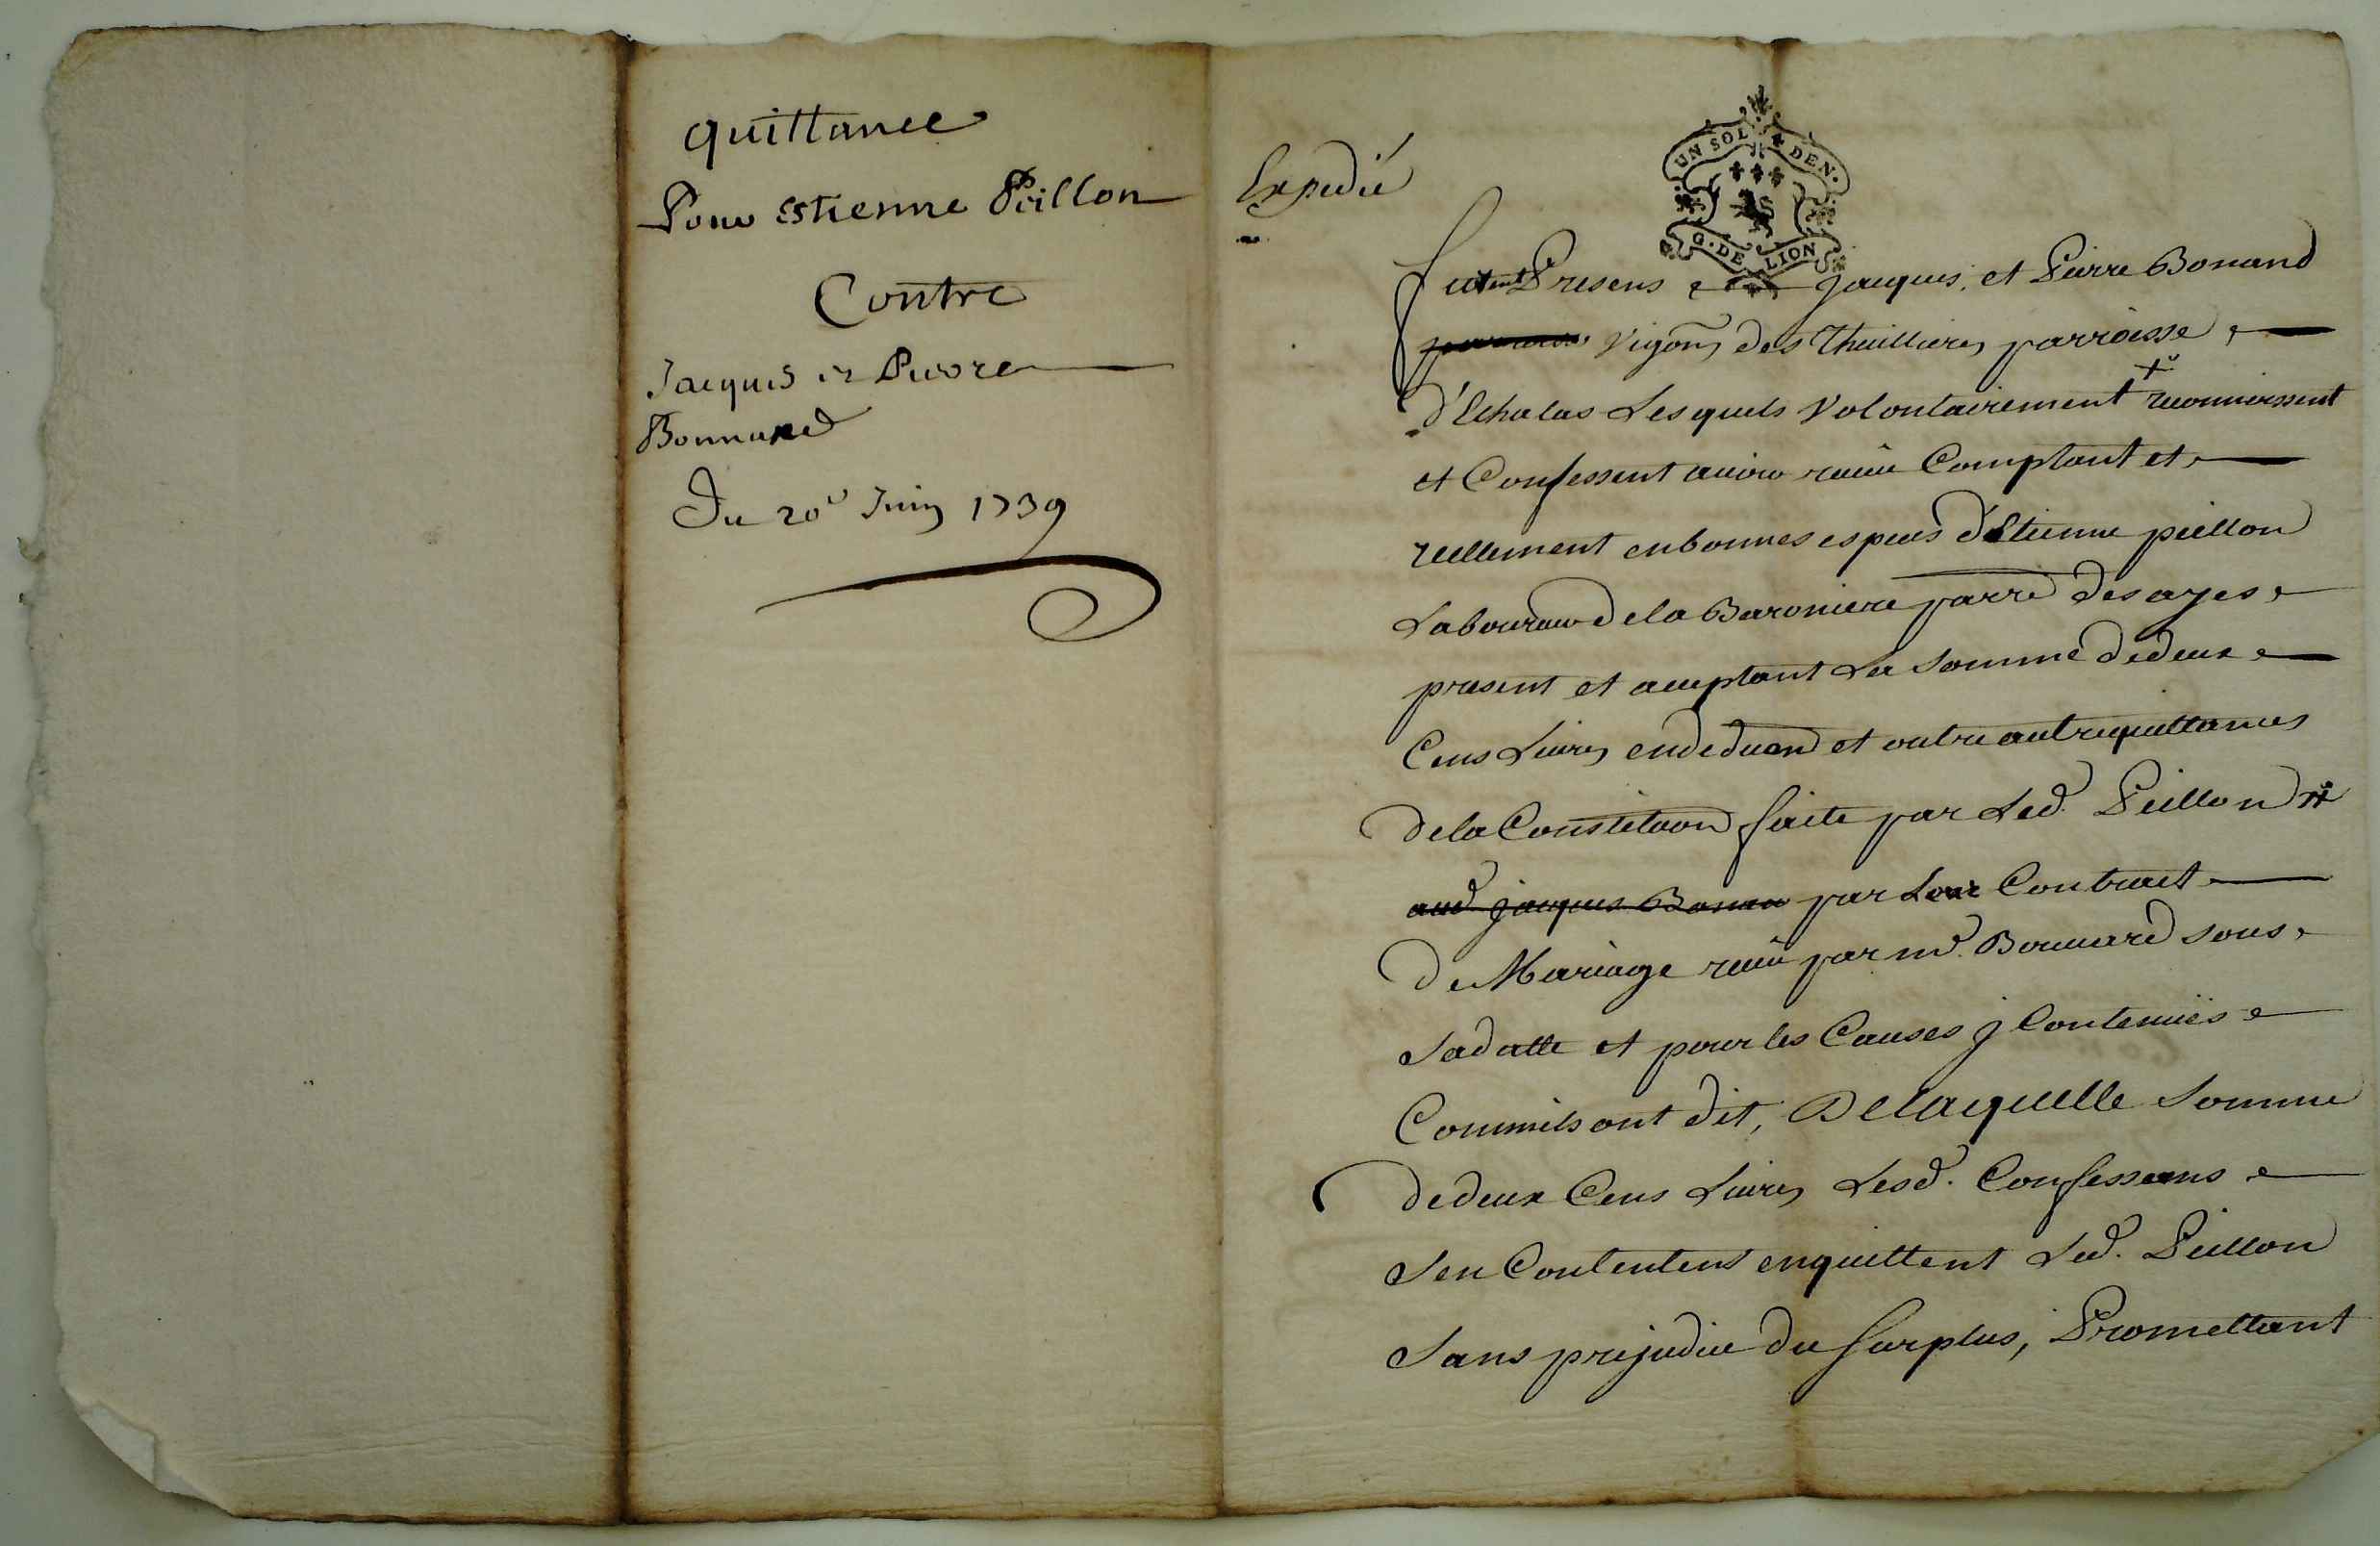 quittance
Pour Estienne Peillon
Contre
Jacques et Pierre
Bonnard
Du 20e Juin 1739
Expedié
UN SOL DEN.
G. DE LION
furent Presens Jacques et Pierre Bonand
Vigons des Thuillieres parroisse
d'Echalas Lesquels Volontairement reconnoissent
et Confessent avoir receu Comptant et
reellement en bonnes especes d'Etienne peillon
Laboureur de la Baroniere parre des ayes
present et acceptant La somme de deux
Cens Livres en deduon et outre autre quittances
de la Constituon faite par Led. Peillon
aud Jacques Bonan par Leur Contract
de Mariage receu par me. Bonnard sous
sa datte et pour les Causes y Contenuës
Comm'ils ont dit, De laquelle somme
de deux Cens Livres Lesd. Confessans
s'en Contentens en quittent Led. Peillon
sans prejudice du surplus, Promettant